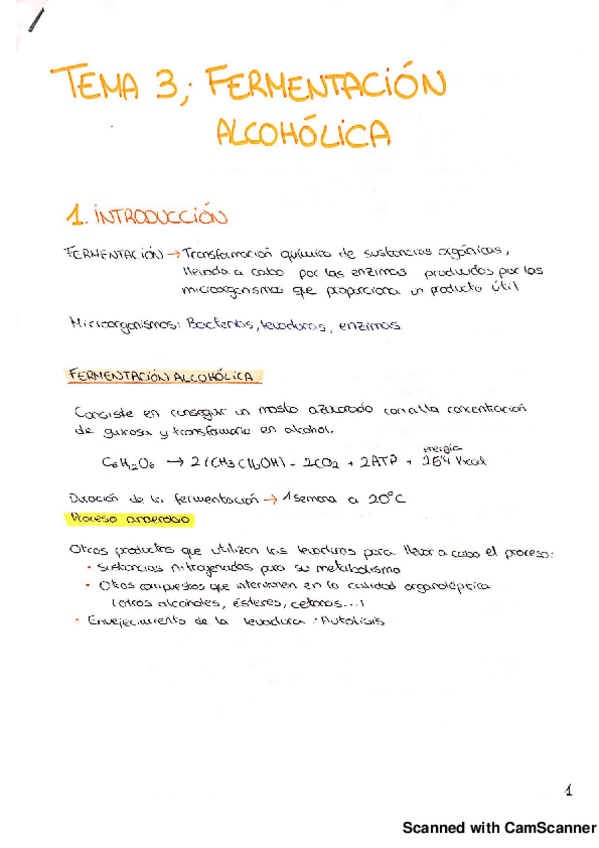 TEMA 3; FERMENTACIÓN
ALCOHÓLICA
1. INTRODUCCIÓN
FERMENTACIÓN → Transformación química de sustancias orgánicas,
llevada a cabo por las enzimas producidas por los
microorganismos que proporciona un producto útil
Microorganismos: Bacterias, levaduras, enzimas
FERMENTACIÓN ALCOHÓLICA
Consiste en conseguir un mosto azucarado con alta concentración
de glucosa y transformarlo en alcohol.
energía
→ 2(CH3CH2OH) - 2CO2 + 2ATP + Kcal
Duración de la fermentación → 1 semana a 20°C
Proceso anaerobio
Otros productos que utilizan las levaduras para llevar a cabo el proceso:
• Sustancias nitrogenadas para su metabolismo
• Otros compuestos que intervienen en la calidad organoléptica
(otros alcoholes, ésteres, cetonas...)
• Envejecimiento de la levadura: Autolisis
1
Scanned with CamScanner